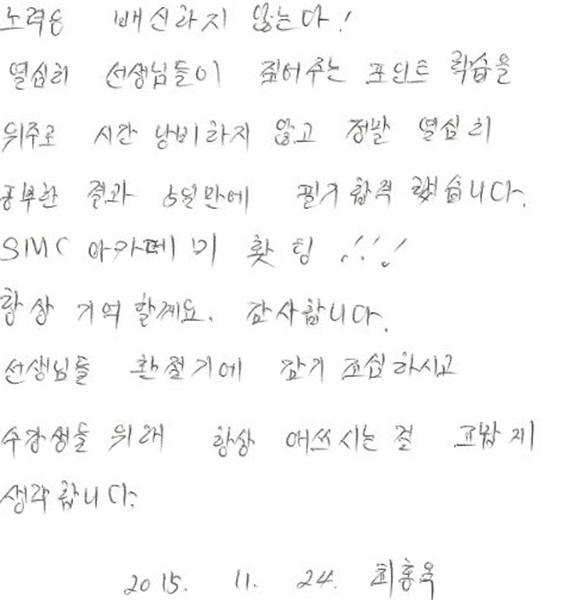 노력은 배신하지 않는다!
열심히 선생님들이 짚어주는 포인트 학습을
위주로 시간 낭비하지 않고 정말 열심히
공부한 결과 5일만에 필기합격 했습니다.
SMC 아카데미 홧팅!!!
항상 기억할게요. 감사합니다.
선생님들 환절기에 감기 조심하시고
수강생들 위해 항상 애쓰시는 걸 고맙게
생각합니다.
2015. 11. 24. 최홍옥